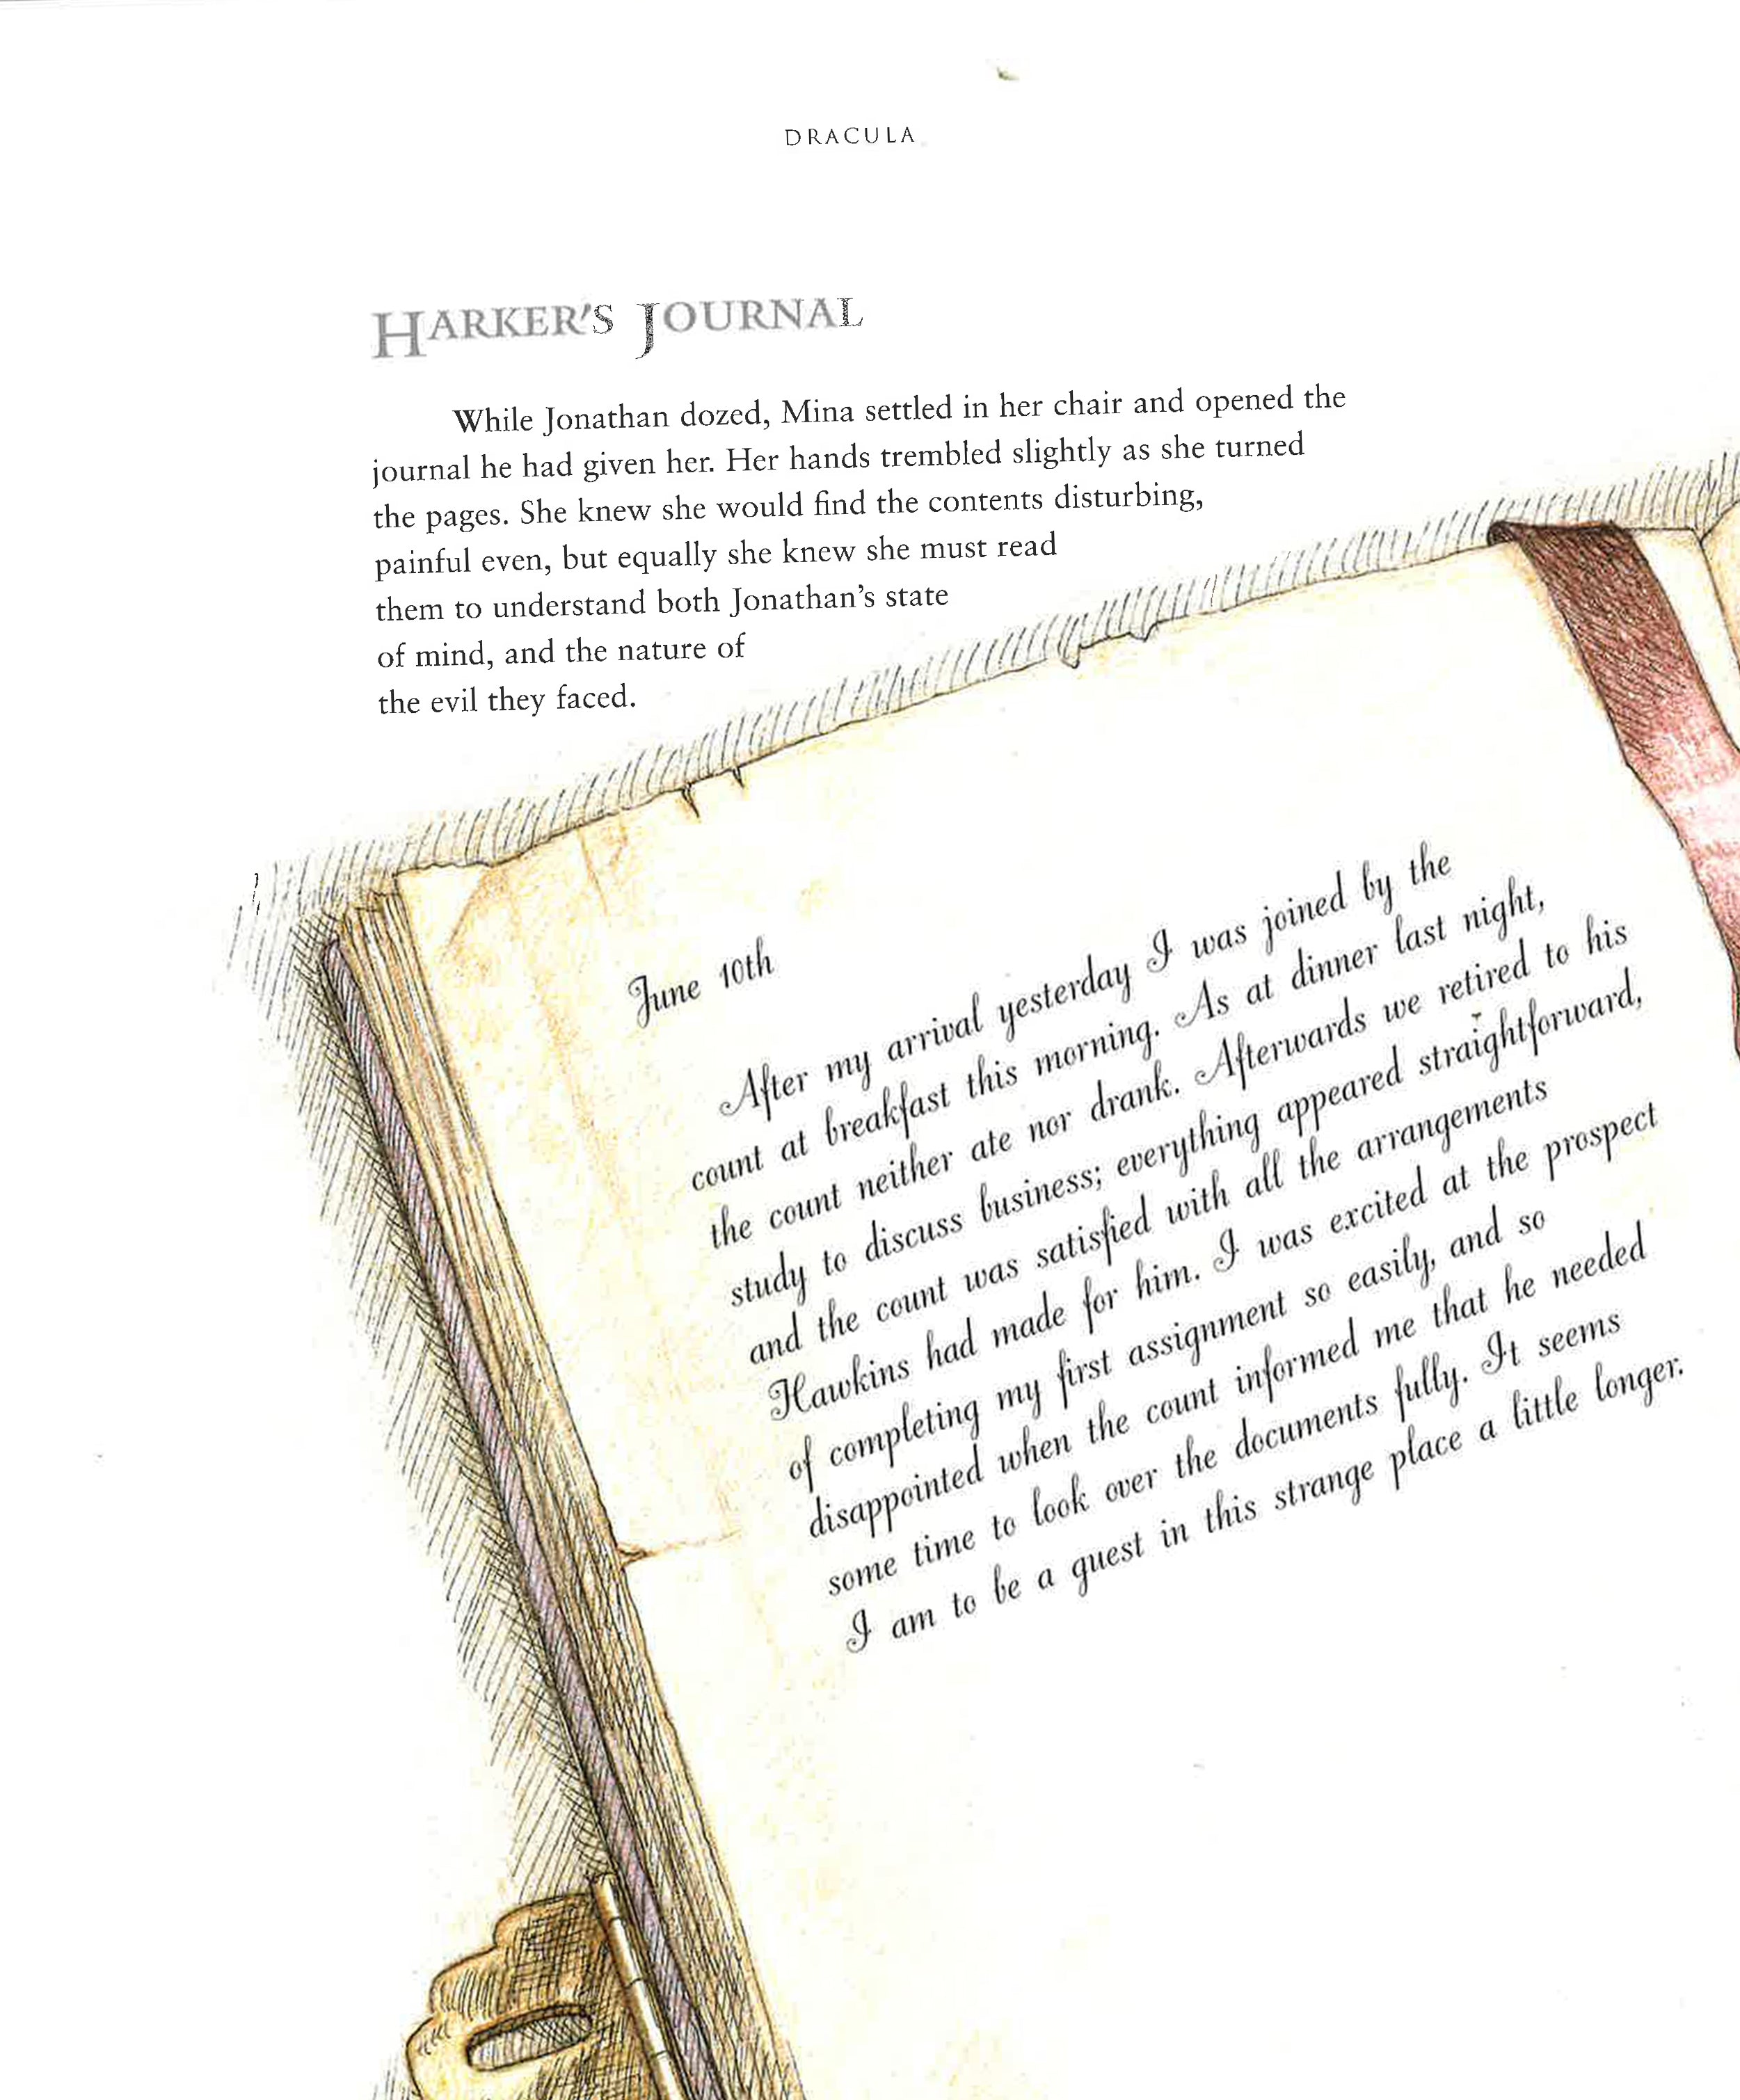 DRACULA
HARKER'S JOURNAL
While Jonathan dozed, Mina settled in her chair and opened the
journal he had given her. Her hands trembled slightly as she turned
the pages. She knew she would find the contents disturbing,
painful even, but equally she knew she must read
them to understand both Jonathan's state
of mind, and the nature of
the evil they faced.
June 10th
After my arrival yesterday I was joined by the
count at breakfast this morning. As at dinner last night,
the count neither ate nor drank. Afterwards we retired to his
study to discuss business; everything appeared straightforward,
and the count was satisfied with all the arrangements
Hawkins had made for him. I was excited at the prospect
of completing my first assignment so easily, and so
disappointed when the count informed me that he needed
some time to look over the documents fully. It seems
I am to be a guest in this strange place a little longer.